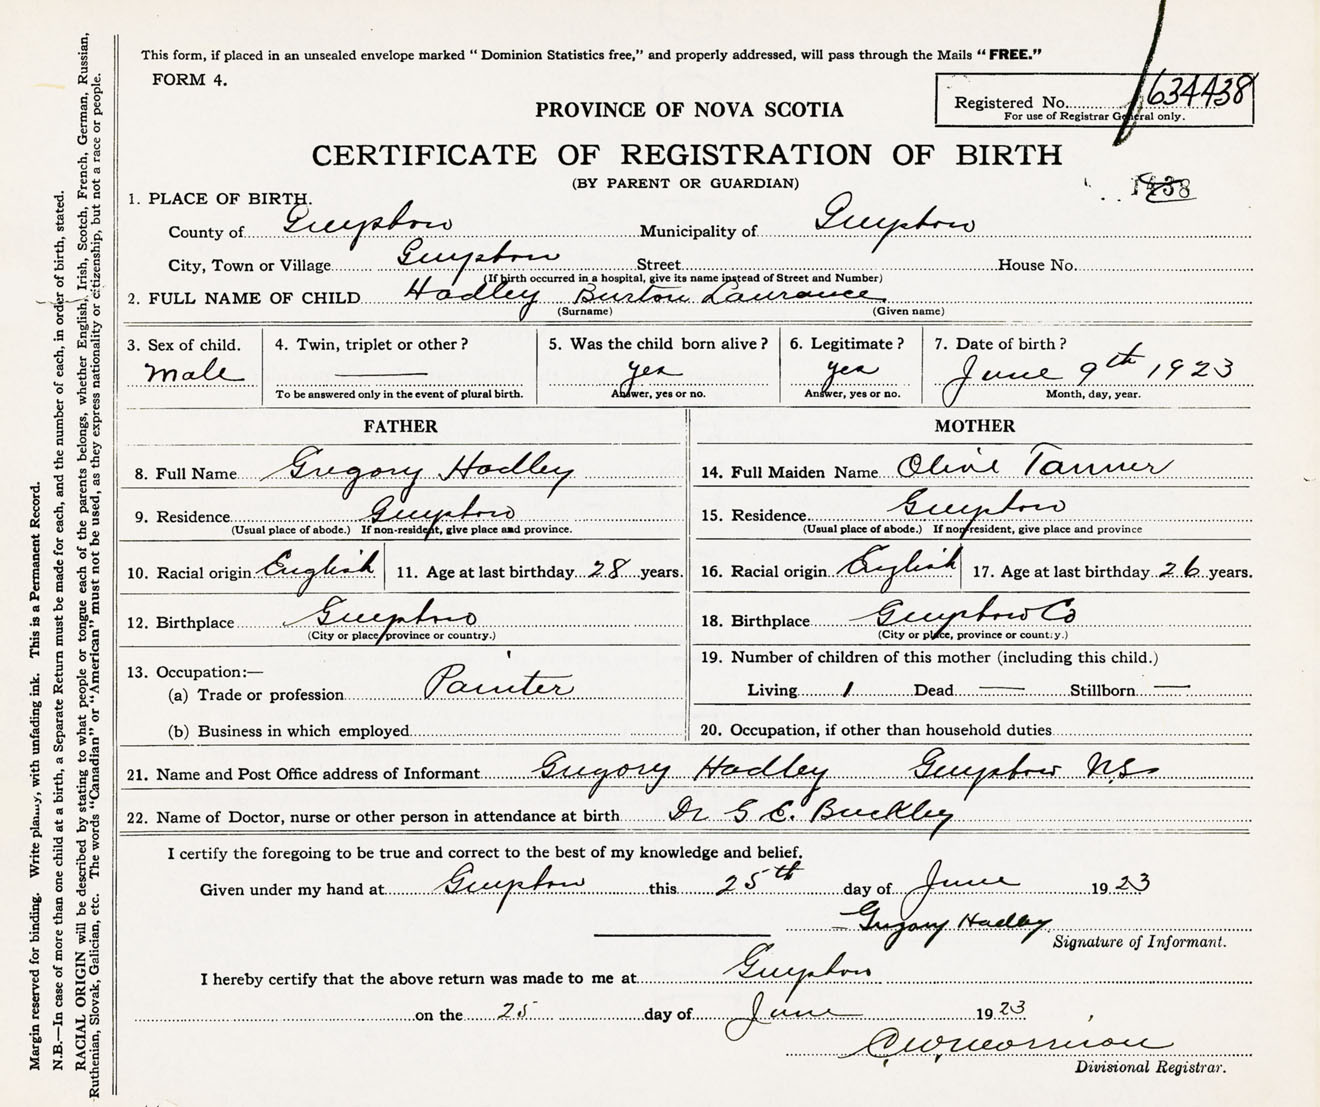 This form, if placed in an unsealed envelope marked "Dominion Statistics free," and properly addressed, will pass through the Mails "FREE."
FORM 4.
Registered No. 634438
For use of Registrar General only.
PROVINCE OF NOVA SCOTIA
CERTIFICATE OF REGISTRATION OF BIRTH
(BY PARENT OR GUARDIAN)
1. PLACE OF BIRTH.
County of Guysboro Municipality of Guysboro
City, Town or Village Guysboro Street House No.
(If birth occurred in a hospital, give its name instead of Street and Number)
2. FULL NAME OF CHILD Hadley Burton Laurance
(Surname) (Given name)
3. Sex of child. 4. Twin, triplet or other? 5. Was the child born alive? 6. Legitimate? 7. Date of birth?
Male yes yes June 9th 1923
To be answered only in the event of plural birth. Answer, yes or no. Answer, yes or no. Month, day, year.
FATHER MOTHER
8. Full Name Gregory Hadley 14. Full Maiden Name Olive Tanner
9. Residence Guysboro 15. Residence Guysboro
(Usual place of abode.) If non-resident, give place and province. (Usual place of abode.) If non-resident, give place and province
10. Racial origin English 11. Age at last birthday 28 years. 16. Racial origin English 17. Age at last birthday 26 years.
12. Birthplace Guysboro 18. Birthplace Guysboro Co
(City or place, province or country.) (City or place, province or country.)
13. Occupation:— 19. Number of children of this mother (including this child.)
(a) Trade or profession Painter Living 1 Dead — Stillborn —
(b) Business in which employed 20. Occupation, if other than household duties
21. Name and Post Office address of Informant Gregory Hadley Guysboro N.S.
22. Name of Doctor, nurse or other person in attendance at birth Dr G E. Buckley
I certify the foregoing to be true and correct to the best of my knowledge and belief.
Given under my hand at Guysboro this 25th day of June 1923
Gregory Hadley
Signature of Informant.
I hereby certify that the above return was made to me at Guysboro
on the 25 day of June 1923
C.W. Morrison
Divisional Registrar.
Margin reserved for binding. Write plainly, with unfading ink. This is a Permanent Record.
N.B.—In case of more than one child at a birth, a Separate Return must be made for each, and the number of each, in order of birth, stated.
RACIAL ORIGIN will be described by stating to what people or tongue each of the parents belongs, whether English, Irish, Scotch, French, German, Russian,
Ruthenian, Slovak, Galician, etc. The words "Canadian" or "American" must not be used, as they express nationality or citizenship, but not a race or people.